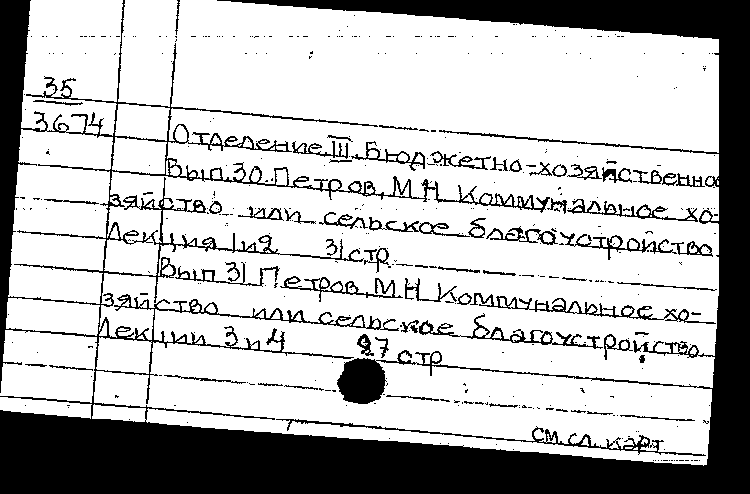 35
3674
Отделение III. Бюджетно-хозяйственно
Вып. 30. Петров, М.Н. Коммунальное хо-
зяйство или сельское благоустройство.
Лекция 1 и 2 31 стр.
Вып 31 Петров, М.Н Коммунальное хо-
зяйство или сельское благоустройство.
Лекции 3 и 4 27 стр
см. сл. карт